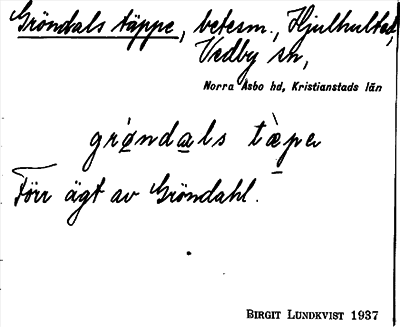 Gröndals täppe, betesm., Hjulhultad,
Vedby sn,
Norra Åsbo hd, Kristianstads län
grø̀ndals tæ̀pə
Förr ägt av Gröndahl.
BIRGIT LUNDKVIST 1937